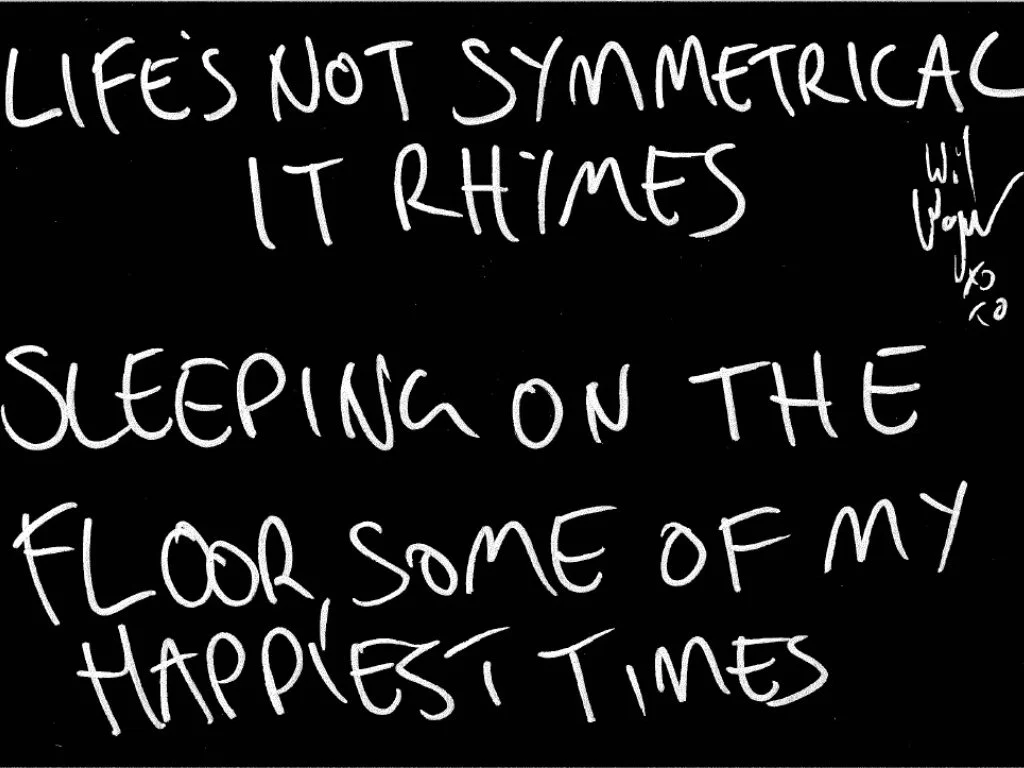 LIFE'S NOT SYMMETRICAL
IT RHYMES
Wil
xo
xo
SLEEPING ON THE
FLOOR, SOME OF MY
HAPPIEST TIMES